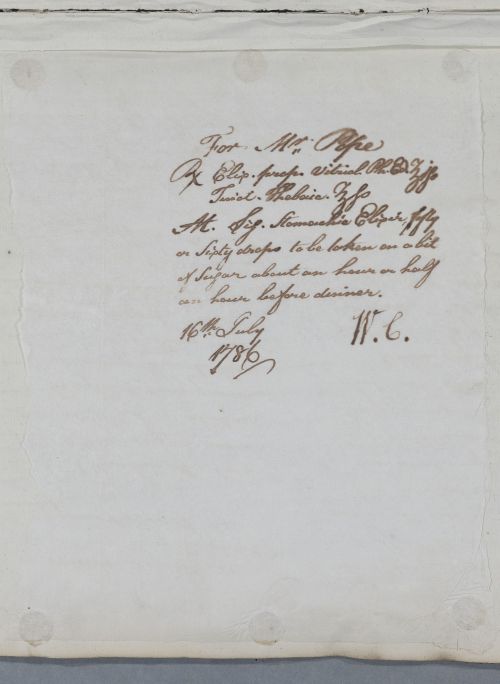 For Mr. Pope
℞ Elix. prop. Vitriol. Ph. Ed. ʒjſs
Tinct. Thebaic. ʒſs
M. Sig. Stomachic Elixir, fifty
or Sixty drops to be taken on a bit
of Sugar about an hour or half
an hour before dinner.
16th. July W. C.
1786